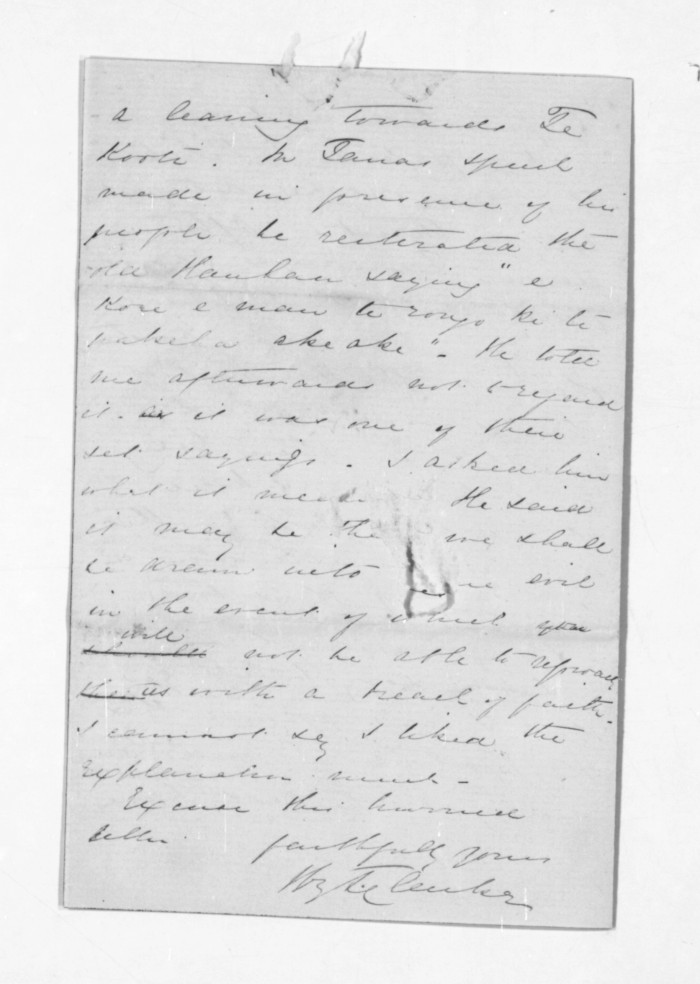 a leaning towards Te
Kooti. In Tanas speech
made in presence of his
people he reiterated the
old Hauhau saying "e
kore e mau te rongo ki te
pakeha ake ake". He told
me afterwards not to regard
it as it was one of their
set sayings. I asked him
what it mea He said
it may be tha we shall
be drawn into evil
in the event of which you
will
should not be able to reproach
them us with a breach of faith.
I cannot say I liked the
explanation much -
Excuse this hurried
letter faithfully yours
Clarke